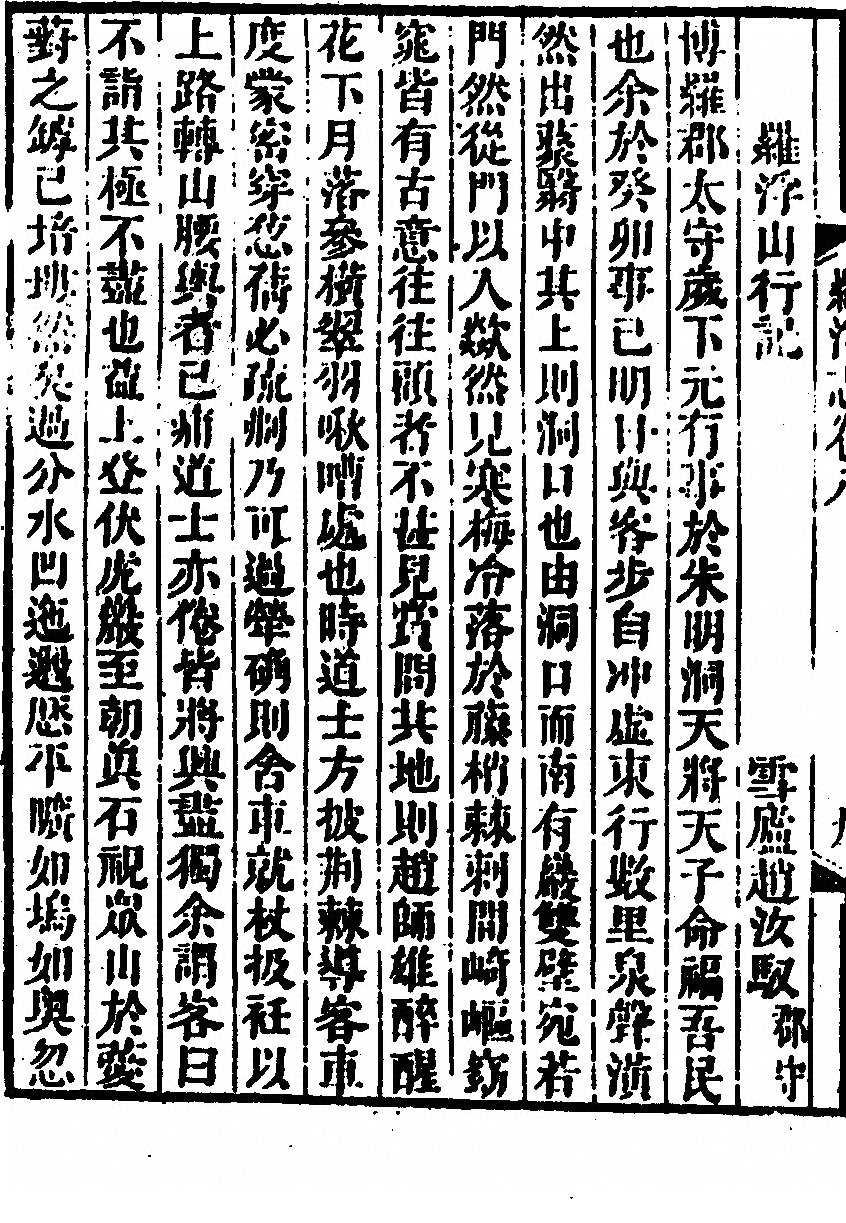 羅浮山行記
雪廬趙汝馭郡守
博羅郡太守歲下元有事於朱明洞天將天子命福吾民
也余於癸卯事已明日與客步自冲虛東行數里泉聲潢
然出蓊翳中其上則洞口也由洞口而南有巖雙壁宛若
門然從門以入歘然見寒梅冷落於藤梢棘刺間崎嶇窈
窕皆有古意往往顧者不甚見賞問其地則趙師雄醉醒
花下月落參橫翠羽啾嘈處也時道士方披荆棘導客車
度蒙密穿葱蒨必疏剔乃可過犖确則舍車就杖扱衽以
上路轉山腰輿者已痡道士亦倦皆將興盡獨余謂客曰
不詣其極不盡也益上登伏虎巖至朝眞石視眾山於薆
薱之鏬已培塿然矣過分水凹迤邐歷平隮如塢如奥忽